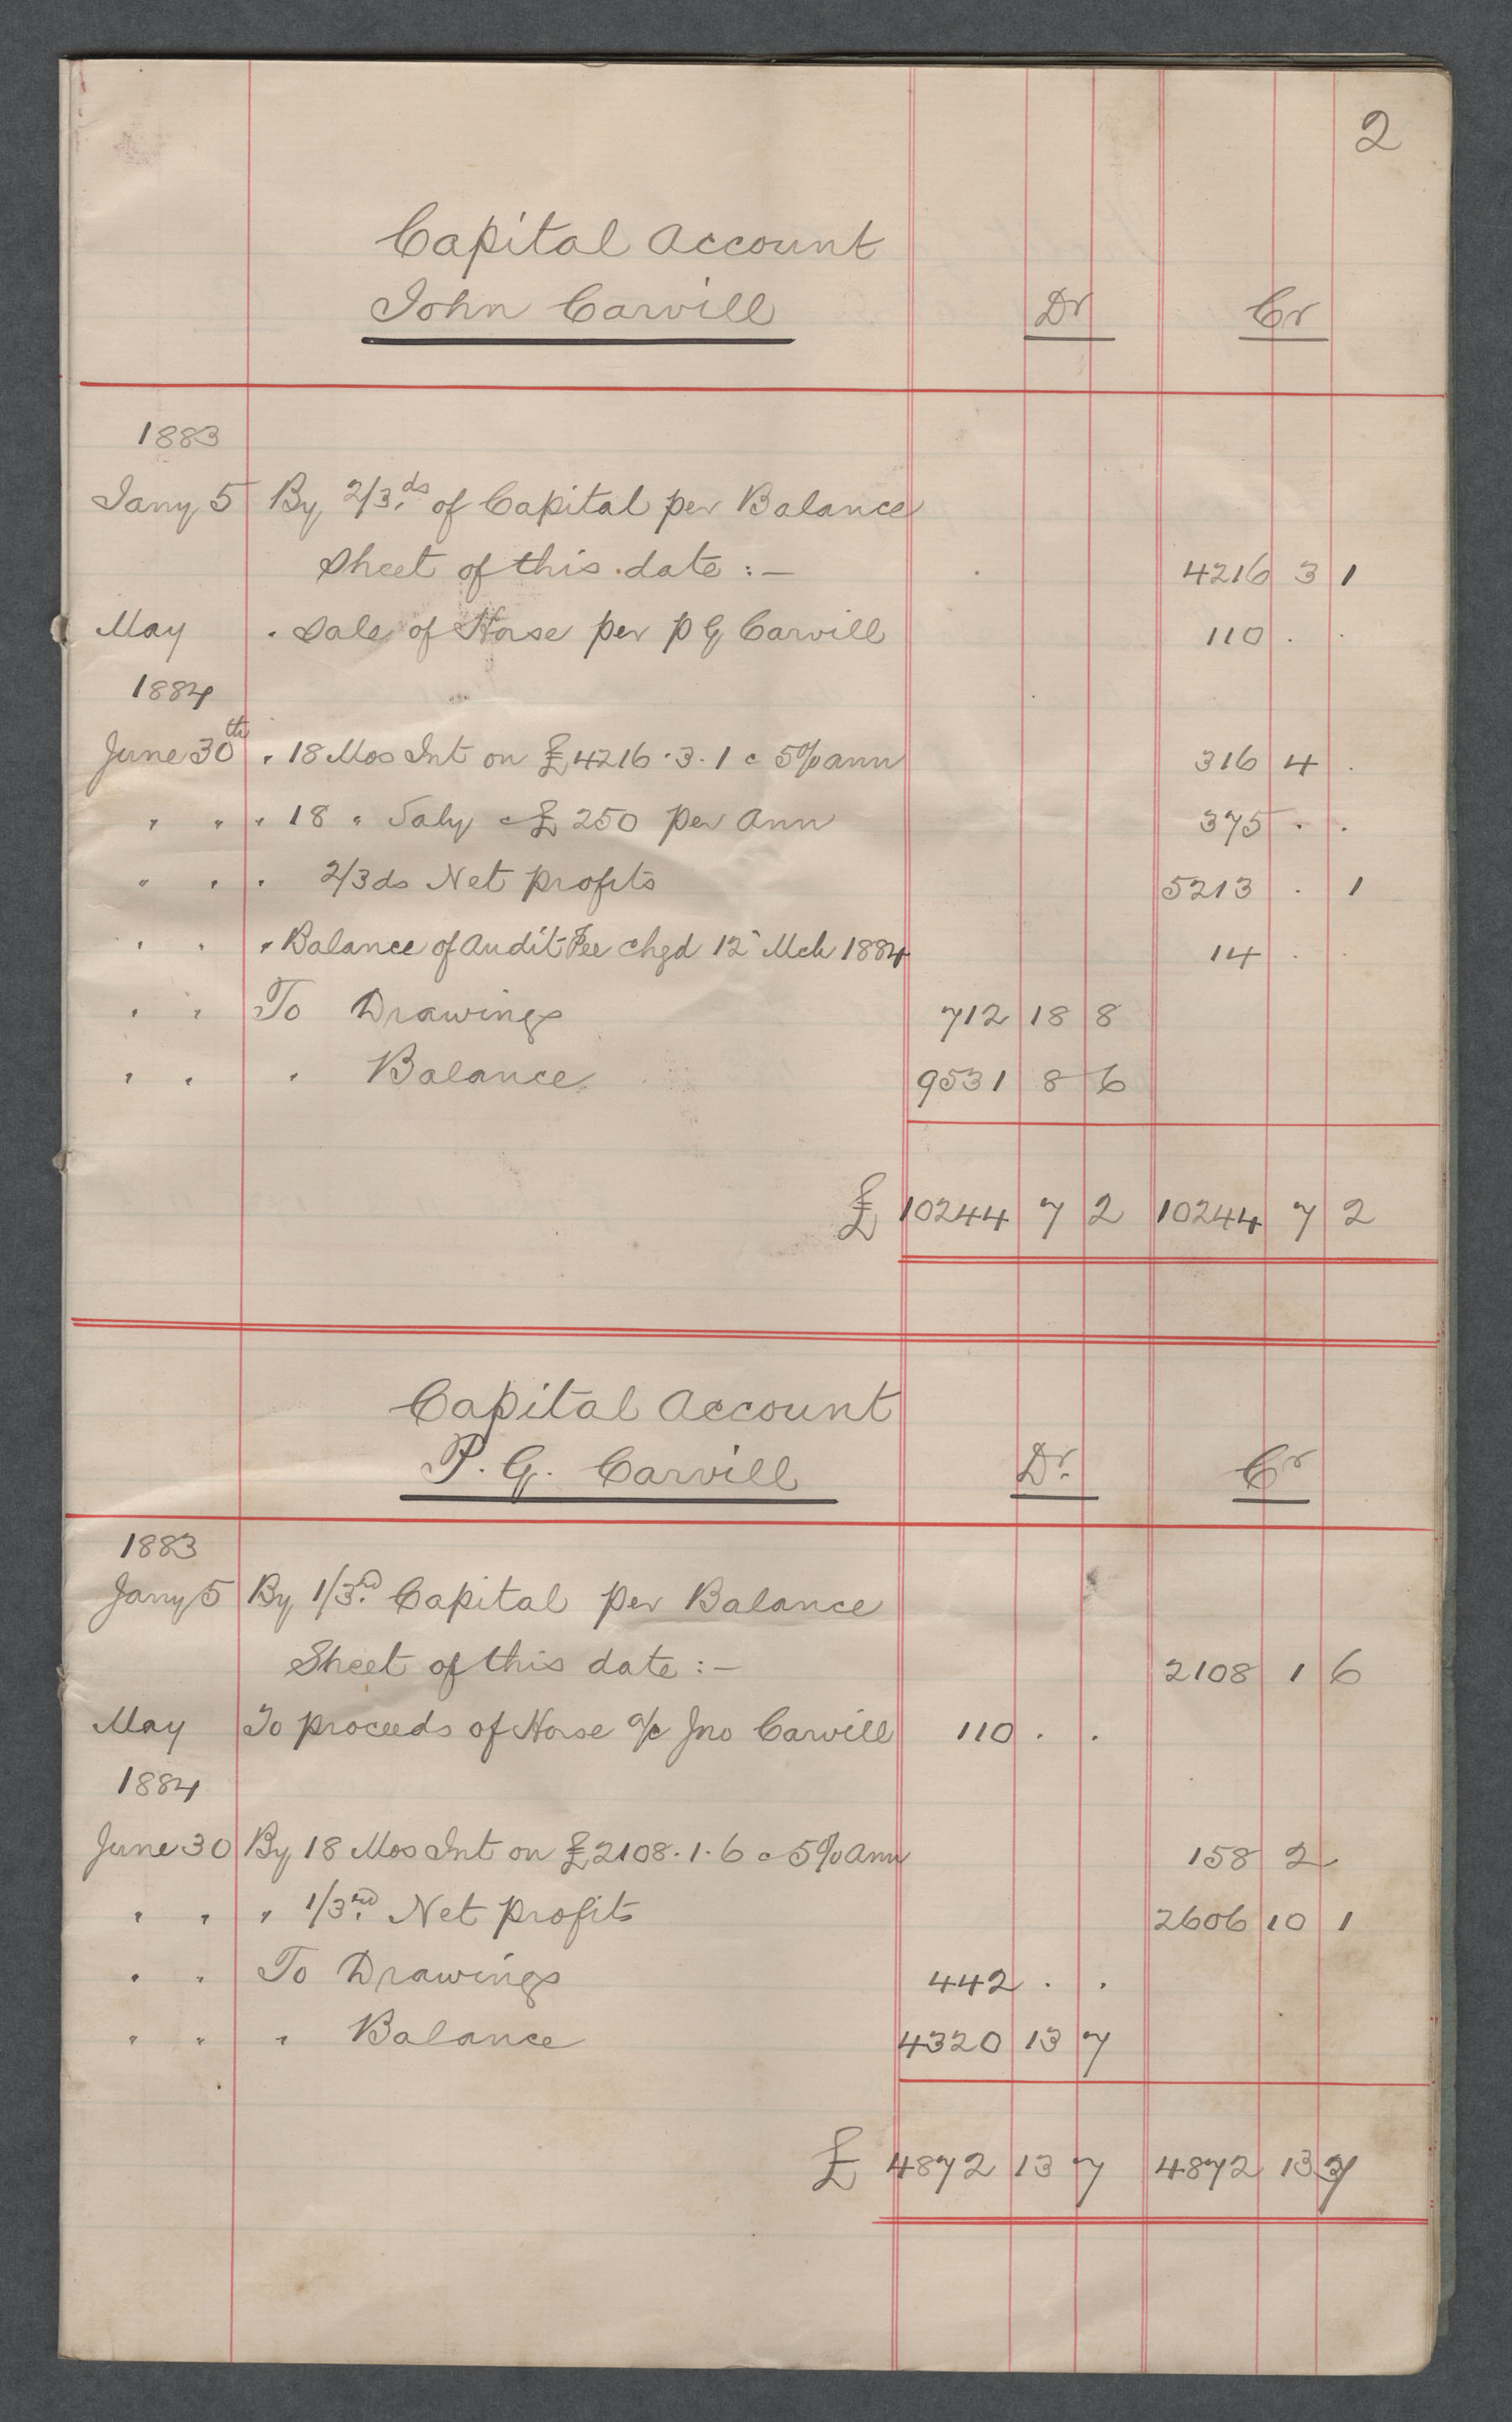 2
Capital Account
John Carvill Dr Cr
1883
Jany 5 By 2/3.ds of Capital per Balance
Sheet of this date :— 4216 3 1
May " Sale of Horse per P G Carvill 110 . .
1884
June 30th " 18 Mos Int on £4216.3.1 @ 5% ann 316 4 .
" " " 18 " Saly @ £250 per Ann 375 . .
" " " 2/3ds Net Profits 5213 . 1
" " " Balance of Audit Fee chgd 12" Mch 1884 14 . .
" " To Drawings 712 18 8
" " " Balance 9531 8 6
£ 10244 7 2 10244 7 2
Capital Account
P. G. Carvill Dr. Cr
1883
Jany 5 By 1/3.rd Capital per Balance
Sheet of this date :— 2108 1 6
May To proceeds of Horse a/c Jno Carvill 110 . .
1884
June 30 By 18 Mos Int on £2108.1.6 @ 5% Ann 158 2
" " " 1/3.rd Net Profits 2606 10 1
" " To Drawings 442 . .
" " " Balance 4320 13 7
£ 4872 13 7 4872 13 7